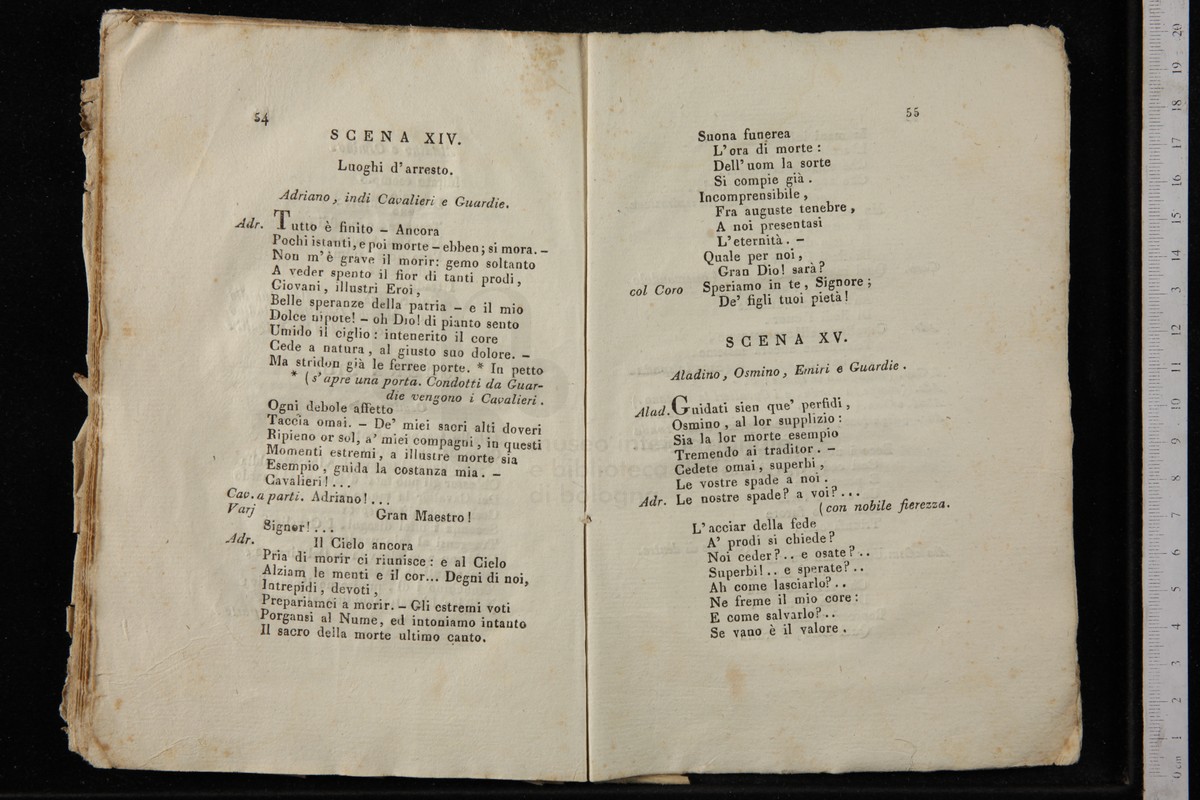 54
SCENA XIV.
Luoghi d'arresto.
Adriano, indi Cavalieri e Guardie.
Adr. Tutto è finito – Ancora
Pochi istanti, e poi morte – ebben; si mora. –
Non m'è grave il morir: gemo soltanto
A veder spento il fior di tanti prodi,
Giovani, illustri Eroi,
Belle speranze della patria – e il mio
Dolce nipote! – oh Dio! di pianto sento
Umido il ciglio: intenerito il core
Cede a natura, al giusto suo dolore. –
Ma stridon già le ferree porte. * In petto
* (s'apre una porta. Condotti da Guar-
die vengono i Cavalieri.
Ogni debole affetto
Taccia omai. – De' miei sacri alti doveri
Ripieno or sol, a' miei compagni, in questi
Momenti estremi, a illustre morte sia
Esempio, guida la costanza mia. –
Cavalieri! ...
Cav. a parti. Adriano! ...
Varj Gran Maestro!
Signor! ...
Adr. Il Cielo ancora
Pria di morir ci riunisce: e al Cielo
Alziam le menti e il cor... Degni di noi,
Intrepidi, devoti,
Prepariamci a morir. – Gli estremi voti
Porgansi al Nume, ed intoniamo intanto
Il sacro della morte ultimo canto.
55
Suona funerea
L'ora di morte:
Dell' uom la sorte
Si compie già.
Incomprensibile,
Fra auguste tenebre,
A noi presentasi
L'eternità. –
Quale per noi,
Gran Dio! sarà?
col Coro Speriamo in te, Signore;
De' figli tuoi pietà!
SCENA XV.
Aladino, Osmino, Emiri e Guardie.
Alad. Guidati sien que' perfidi,
Osmino, al lor supplizio:
Sia la lor morte esempio
Tremendo ai traditor. –
Cedete omai, superbi,
Le vostre spade a noi.
Adr. Le nostre spade? a voi? ...
(con nobile fierezza.
L'acciar della fede
A' prodi si chiede?
Noi ceder? .. e osate? ..
Superbi! .. e sperate? ..
Ah come lasciarlo? ..
Ne freme il mio core:
E come salvarlo? ..
Se vano è il valore.
museo inte
e biblioteca
di bologn